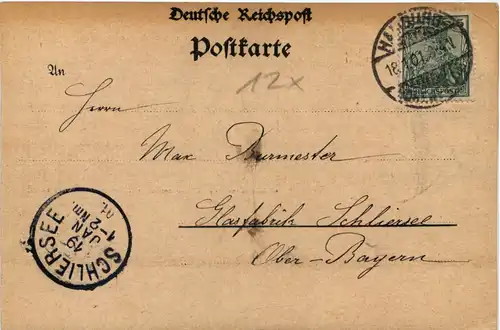 Deutsche Reichspost
Postkarte
HAMBURG
18.1.01.
12x
An
Herrn
Max Burmester
Glasfabrik Schliersee
Ober-Bayern
SCHLIERSEE
19
JAN
1-2 Nm.
01.